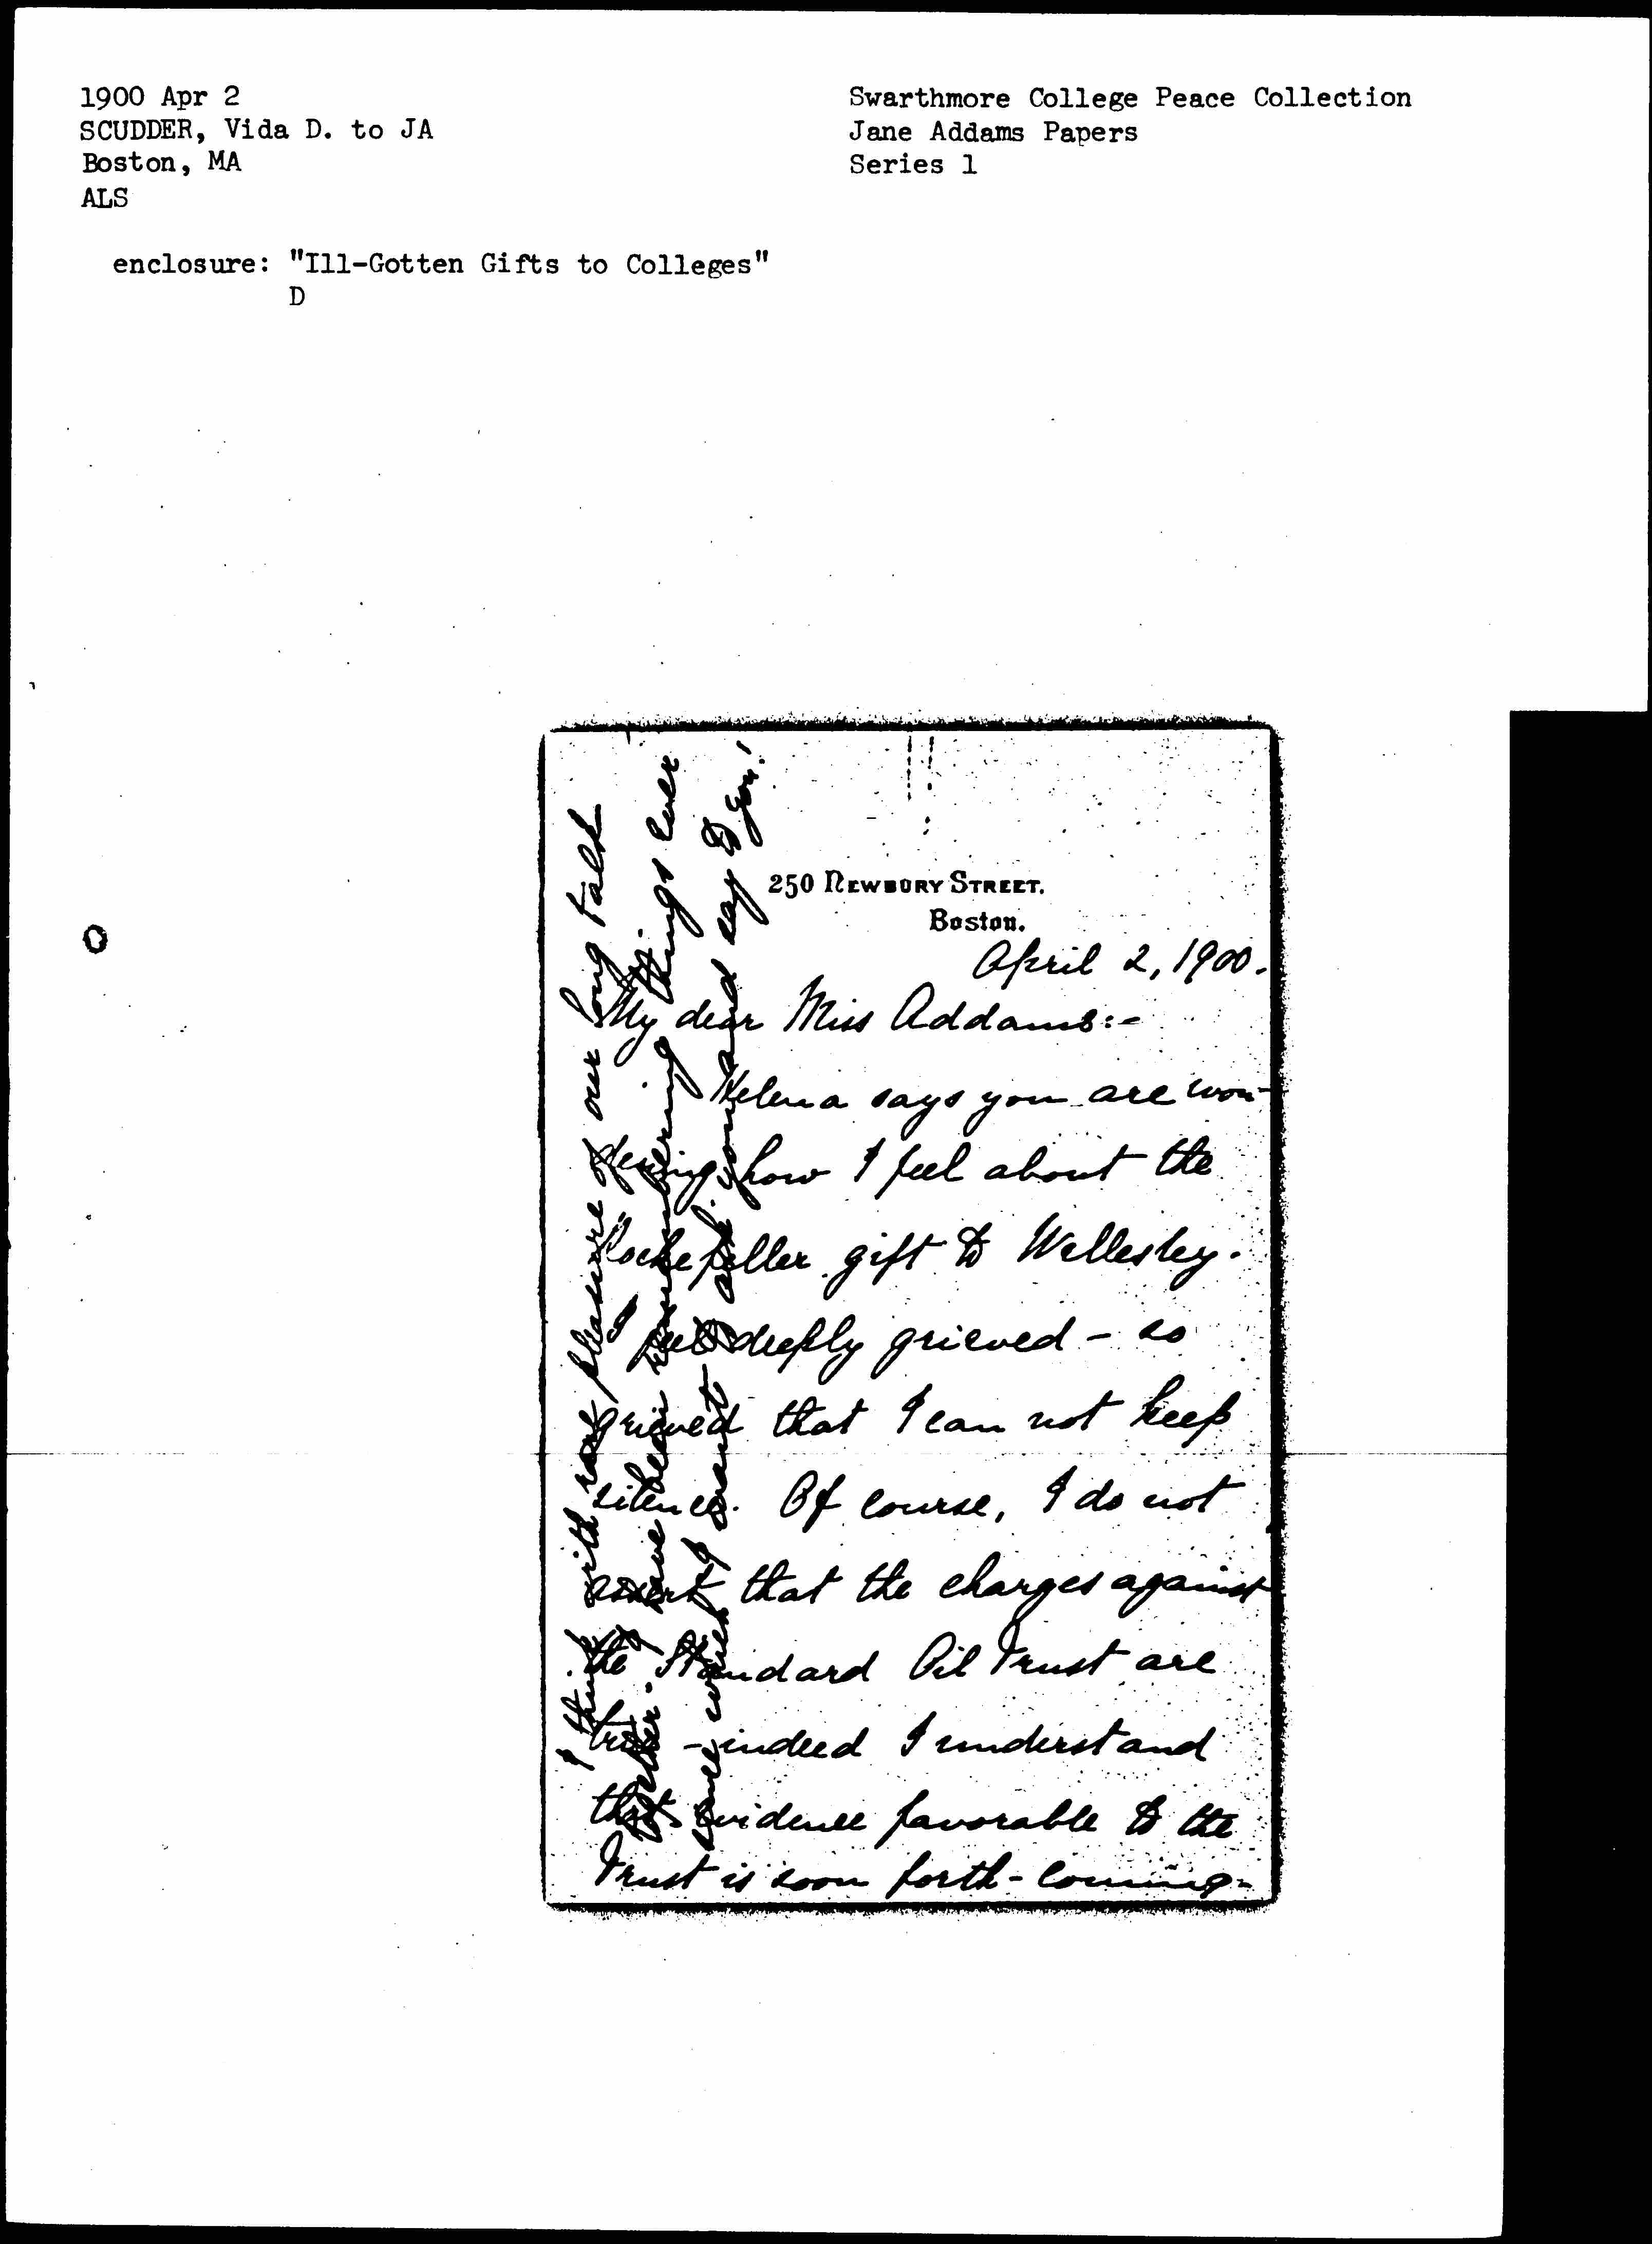 1900 Apr 2
SCUDDER, Vida D. to JA
Boston, MA
ALS
enclosure: "Ill-Gotten Gifts to Colleges"
D
Swarthmore College Peace Collection
Jane Addams Papers
Series 1
250 Newbury Street.
Boston.
April 2, 1900.
My dear Miss Addams:-
Helena says you are won-
dering how I feel about the
Rockefeller gift to Wellesley.
I feel deeply grieved - so
grieved that I can not keep
silence. Of course, I do not
assert that the charges against
the Standard Oil Trust are
true - indeed I understand
that evidence favorable to the
Trust is soon forth-coming-
I think with rare pleasure of our long talk
together. I have been remembering things ever
since which I want to ask you and say to you!